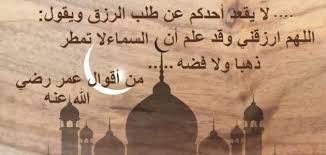 .... لا يقعد أحدكم عن طلب الرزق ويقول:
اللهم ارزقني وقد علم أن السماءلا تمطر
ذهبا ولا فضه .....
من أقوال عمر رضي
الله عنه